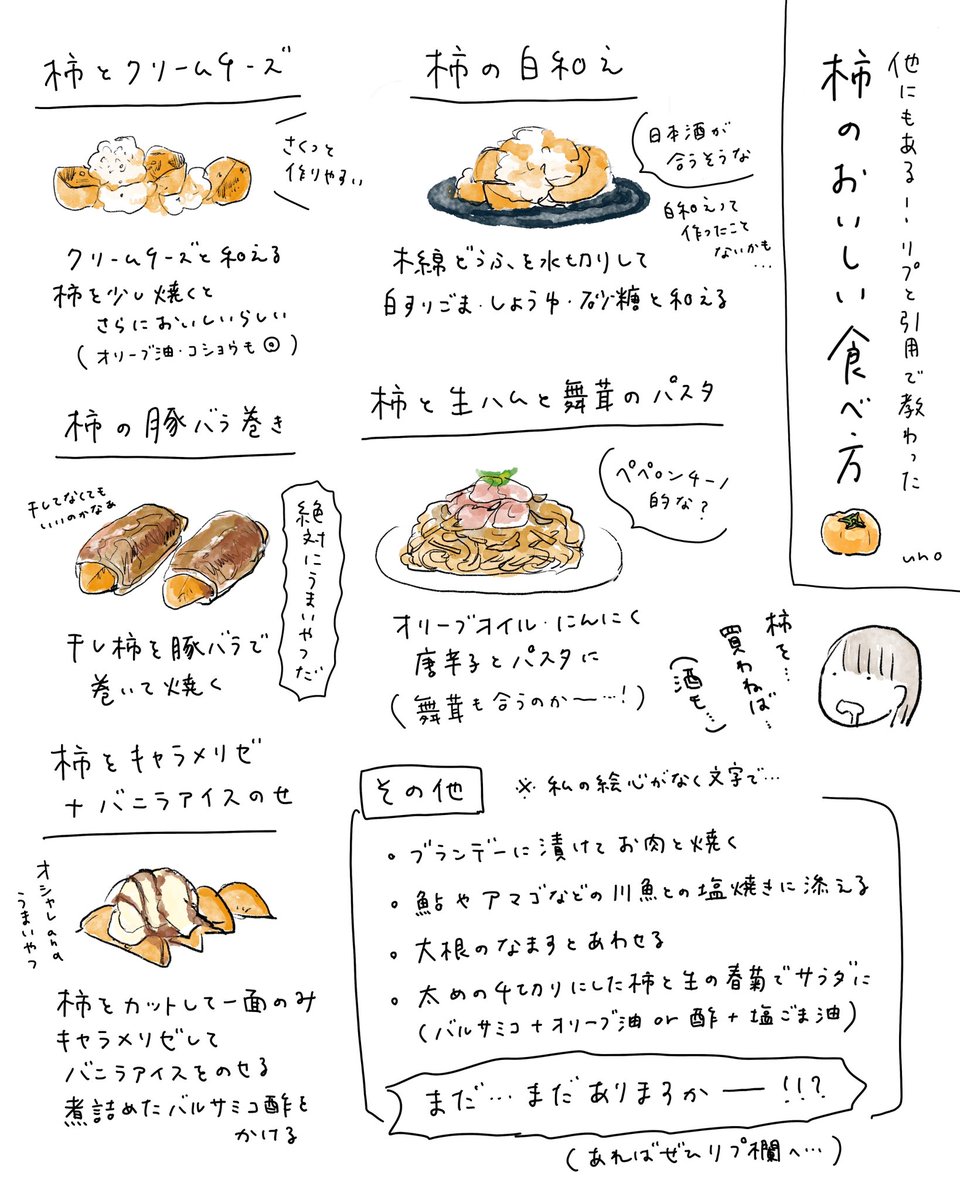 他にもある…リプと引用で教わった
柿のおいしい食べ方
uno
柿の白和え
日本酒が
合うそうな
白和えって
作ったこと
ないかも
…
木綿どうふを水切りして
白すりごま・しょうゆ・砂糖と和える
柿とクリームチーズ
さくっと
作りやすい
クリームチーズと和える
柿を少し焼くと
さらにおいしいらしい
(オリーブ油・コショウも◎)
柿と生ハムと舞茸のパスタ
ペペロンチーノ
的な?
オリーブオイル・にんにく
唐辛子とパスタに
(舞茸も合うのかー…!)
柿の豚バラ巻き
干してなくても
いいのかなあ
絶対にうまいやつだ
干し柿を豚バラで
巻いて焼く
柿を…
買わねば…
(酒も…)
柿をキャラメリゼ
+バニラアイスのせ
オシャレand
うまいやつ
柿をカットして一面のみ
キャラメリゼして
バニラアイスをのせる
煮詰めたバルサミコ酢を
かける
その他
※私の絵心がなく文字で…
。ブランデーに漬けてお肉と焼く
。鮎やアマゴなどの川魚との塩焼きに添える
。大根のなますとあわせる
。太めの千切りにした柿と生の春菊でサラダに
(バルサミコ+オリーブ油or酢+塩ごま油)
まだ…まだありますかー!!?
(あればぜひリプ欄へ…)